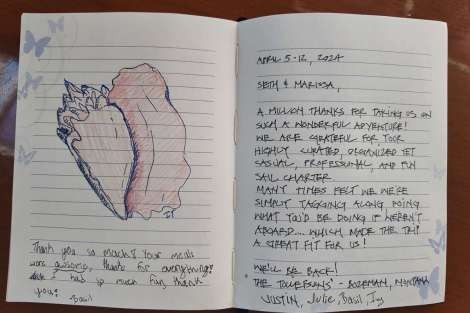 Thank you so much! Your meals
were awesome, thanks for everything!
I had so much fun, thank
you!
Basil
APRIL 5-12, 2024
SETH & MARISSA,
A MILLION THANKS FOR TAKING US ON
SUCH A WONDERFUL ADVENTURE!
WE ARE GRATEFUL FOR YOUR
HIGHLY CURATED, ORGANIZED YET
CASUAL, PROFESSIONAL, AND FUN
SAIL CHARTER.
MANY TIMES FELT WE WERE
SIMPLY TAGGING ALONG, DOING
WHAT YOU'D BE DOING IF WEREN'T
ABOARD... WHICH MADE THE TRIP
A GREAT FIT FOR US!
WE'LL BE BACK!
THE TOLLEFSONS' - BOZEMAN, MONTANA
JUSTIN, Julie, Basil, Ivy